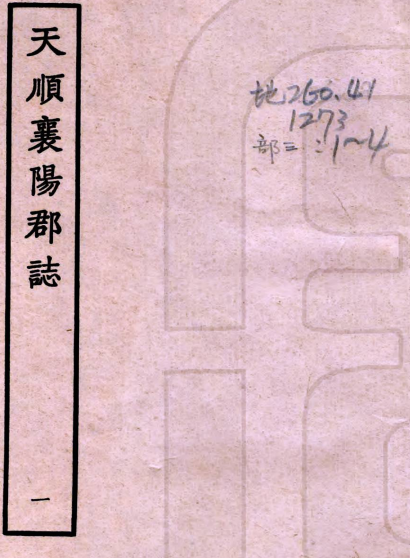 天順襄陽郡誌
一
地260.41
1273
部二:1~4